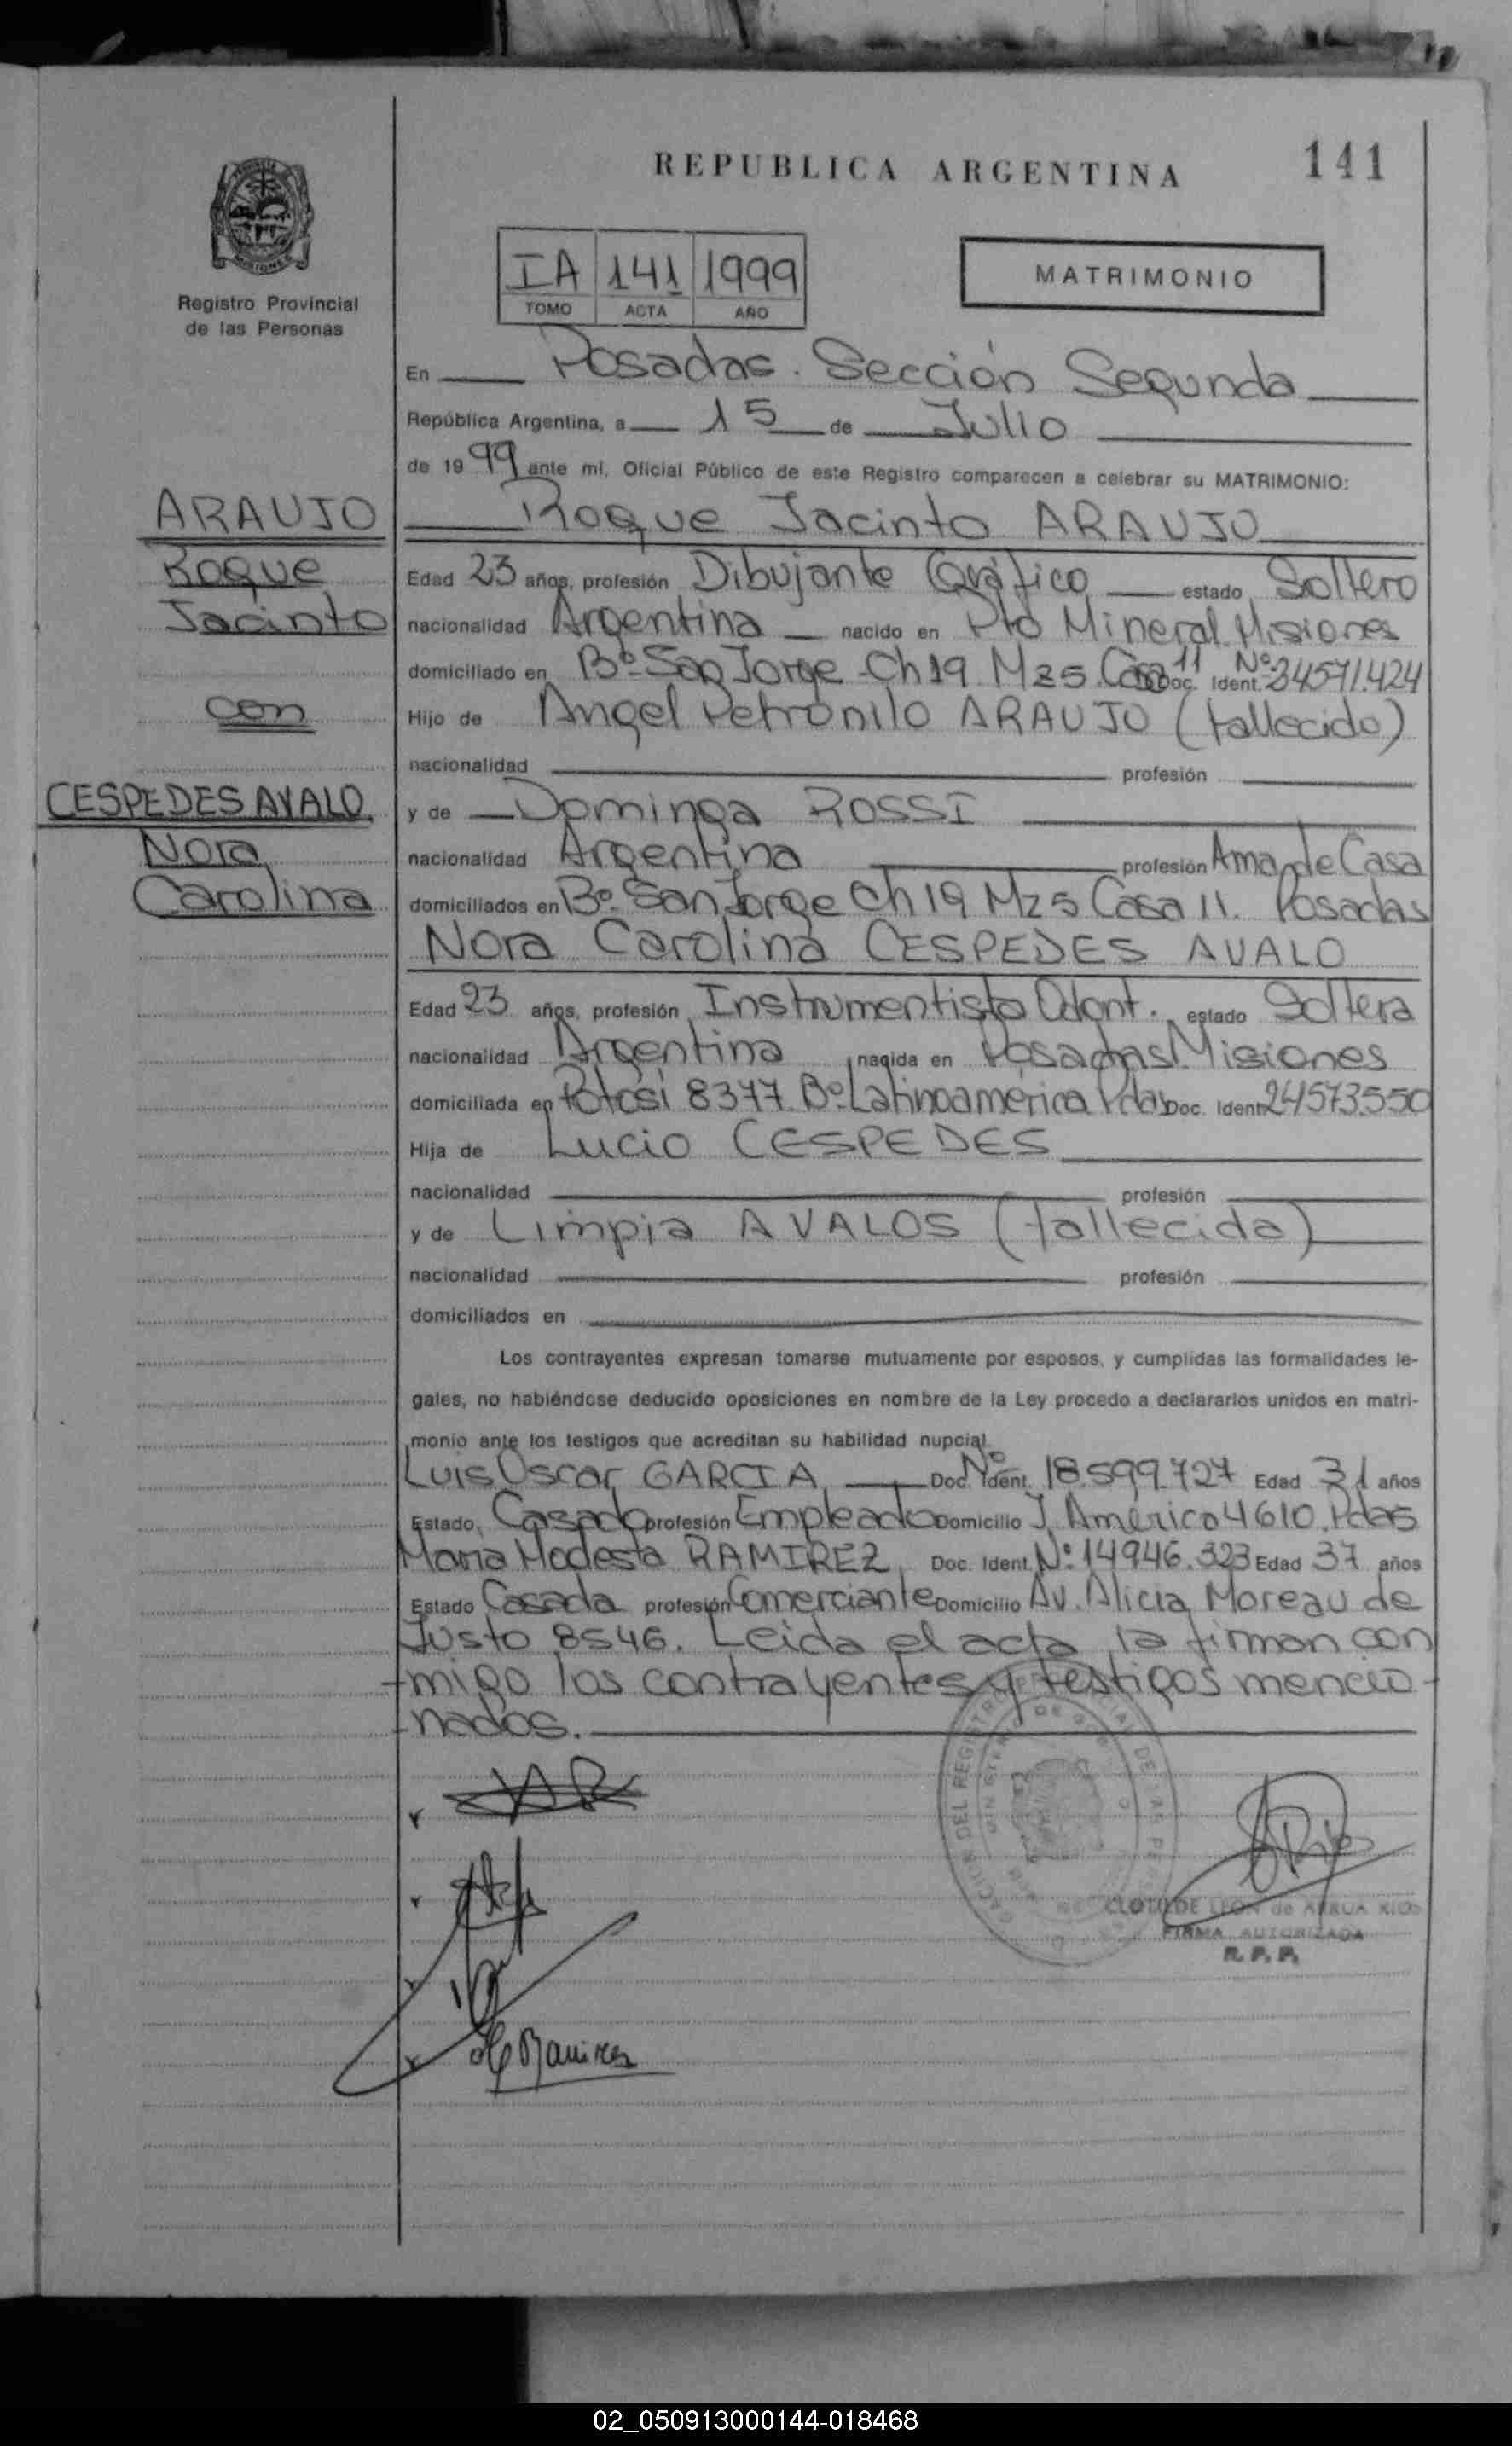 REPUBLICA ARGENTINA
141
MISIONES
Registro Provincial
de las Personas
IA 141 1999
TOMO ACTA AÑO
MATRIMONIO
En Posadas. Sección Segunda
República Argentina, a 15 de Julio
de 1999 ante mí, Oficial Público de este Registro comparecen a celebrar su MATRIMONIO:
ARAUJO
Roque
Jacinto
con
CESPEDES AVALO
Nora
Carolina
Roque Jacinto ARAUJO
Edad 23 años, profesión Dibujante Gráfico estado Soltero
nacionalidad Argentina nacido en Pto Mineral Misiones
domiciliado en Bº San Jorge - Ch 19 Mz 5 Casa 11 Doc. Ident. Nº 24571.424
Hijo de Angel Petronilo ARAUJO (fallecido)
nacionalidad profesión
y de Dominga ROSSI
nacionalidad Argentina profesión Ama de Casa
domiciliados en Bº San Jorge Ch 19 Mz 5 Casa 11. Posadas
Nora Carolina CESPEDES AVALO
Edad 23 años, profesión Instrumentista Odont. estado Soltera
nacionalidad Argentina nacida en Posadas Misiones
domiciliada en Potosí 8377 Bº Latinoamérica Pdas Doc. Ident. 24573.550
Hija de Lucio CESPEDES
nacionalidad profesión
y de Limpia AVALOS (fallecida)
nacionalidad profesión
domiciliados en
Los contrayentes expresan tomarse mutuamente por esposos, y cumplidas las formalidades le-
gales, no habiéndose deducido oposiciones en nombre de la Ley procedo a declararlos unidos en matri-
monio ante los testigos que acreditan su habilidad nupcial
Luis Oscar GARCIA Doc. Ident. Nº 18.599.727 Edad 31 años
Estado Casado profesión Empleado Domicilio J. Américo 4610. Pdas
Maria Modesta RAMIREZ Doc. Ident. Nº 14946.323 Edad 37 años
Estado Casada profesión Comerciante Domicilio Av. Alicia Moreau de
Justo 8546. Leida el acta la firman con
-migo los contrayentes y testigos mencio-
-nados.
Ramirez
CLOTILDE LEON de ARRUA RIOS
FIRMA AUTORIZADA
R. P. P.
02_050913000144-018468